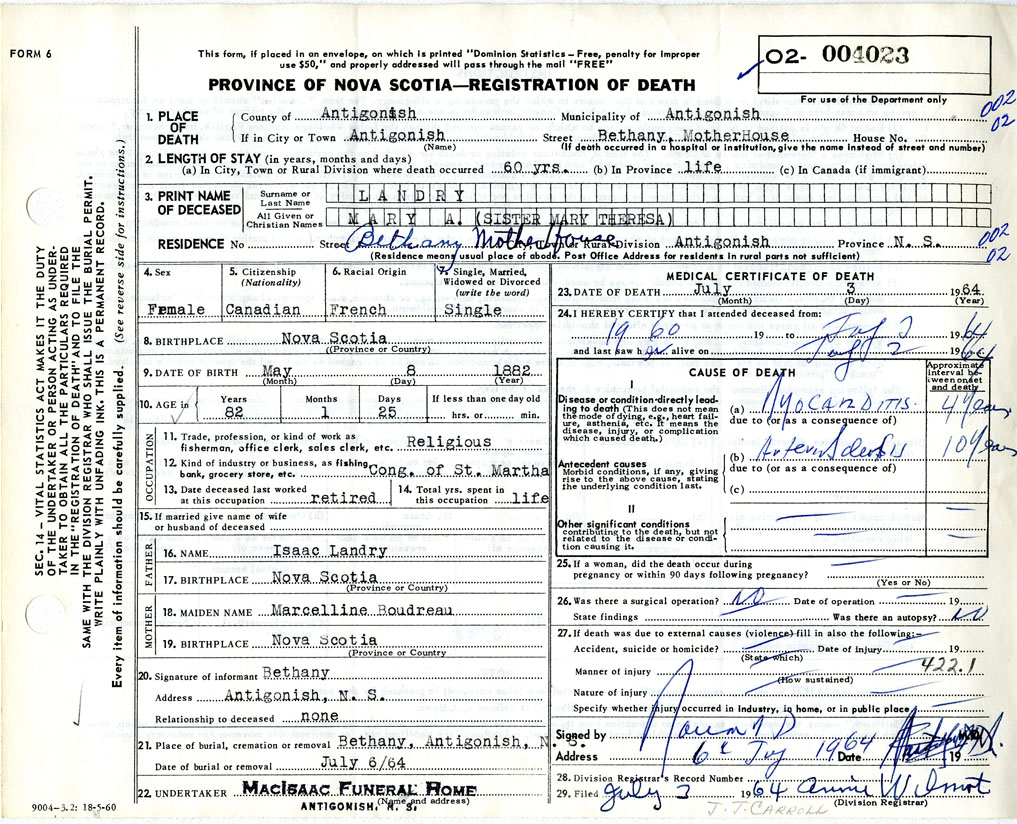 FORM 6
This form, if placed in an envelope, on which is printed "Dominion Statistics – Free, penalty for improper
use $50," and properly addressed will pass through the mail "FREE"
PROVINCE OF NOVA SCOTIA—REGISTRATION OF DEATH
O2- 004023
For use of the Department only
002
02
SEC. 14 – VITAL STATISTICS ACT MAKES IT THE DUTY
OF THE UNDERTAKER OR PERSON ACTING AS UNDER-
TAKER TO OBTAIN ALL THE PARTICULARS REQUIRED
IN THE "REGISTRATION OF DEATH" AND TO FILE THE
SAME WITH THE DIVISION REGISTRAR WHO SHALL ISSUE THE BURIAL PERMIT.
WRITE PLAINLY WITH UNFADING INK. THIS IS A PERMANENT RECORD.
Every item of information should be carefully supplied. (See reverse side for instructions.)
1. PLACE OF DEATH
County of Antigonish Municipality of Antigonish
If in City or Town Antigonish Street Bethany, MotherHouse House No.
(Name) (If death occurred in a hospital or institution, give the name instead of street and number)
2. LENGTH OF STAY (in years, months and days)
(a) In City, Town or Rural Division where death occurred 60 yrs. (b) In Province life (c) In Canada (if immigrant)
3. PRINT NAME OF DECEASED
Surname or Last Name LANDRY
All Given or Christian Names MARY A. (SISTER MARY THERESA)
RESIDENCE No Street Bethany MotherHouse Town or Rural Division Antigonish Province N. S.
002
02
(Residence means usual place of abode. Post Office Address for residents in rural parts not sufficient)
4. Sex
Female
5. Citizenship
(Nationality)
Canadian
6. Racial Origin
French
7. Single, Married,
Widowed or Divorced
(write the word)
Single
8. BIRTHPLACE Nova Scotia
(Province or Country)
9. DATE OF BIRTH May 8 1882
(Month) (Day) (Year)
10. AGE in
Years Months Days If less than one day old
82 1 25 hrs. or min.
OCCUPATION
11. Trade, profession, or kind of work as
fisherman, office clerk, sales clerk, etc. Religious
12. Kind of industry or business, as fishing
bank, grocery store, etc. Cong. of St. Martha
13. Date deceased last worked
at this occupation retired
14. Total yrs. spent in
this occupation life
15. If married give name of wife
or husband of deceased
FATHER
16. NAME Isaac Landry
17. BIRTHPLACE Nova Scotia
(Province or Country)
MOTHER
18. MAIDEN NAME Marcelline Boudreau
19. BIRTHPLACE Nova Scotia
(Province or Country
20. Signature of informant Bethany
Address Antigonish, N. S.
Relationship to deceased none
21. Place of burial, cremation or removal Bethany, Antigonish, N. S.
Date of burial or removal July 6/64
22. UNDERTAKER MACISAAC FUNERAL HOME
(Name and address)
ANTIGONISH, N. S.
9004–3.2: 18-5-60
MEDICAL CERTIFICATE OF DEATH
23. DATE OF DEATH July 3 1964
(Month) (Day) (Year)
24. I HEREBY CERTIFY that I attended deceased from:
1960 19 to 2 1964
and last saw her alive on 2 1964
CAUSE OF DEATH
Approximate
interval be-
tween onset
and death
I
Disease or condition directly lead-
ing to death (This does not mean
the mode of dying, e.g., heart fail-
ure, asthenia, etc. It means the
disease, injury, or complication
which caused death.)
(a) Myocarditis 4 Years
due to (or as a consequence of)
(b) Arteriosclerosis 10 Years
due to (or as a consequence of)
(c)
Antecedent causes
Morbid conditions, if any, giving
rise to the above cause, stating
the underlying condition last.
II
Other significant conditions
contributing to the death, but not
related to the disease or condi-
tion causing it.
25. If a woman, did the death occur during
pregnancy or within 90 days following pregnancy?
(Yes or No)
26. Was there a surgical operation? NO Date of operation 19
State findings Was there an autopsy? NO
27. If death was due to external causes (violence) fill in also the following:–
Accident, suicide or homicide? Date of injury 19
(State which)
Manner of injury 422.1
(How sustained)
Nature of injury
Specify whether injury occurred in industry, in home, or in public place
Signed by M.D.
Address 6 1964 Date 19
28. Division Registrar's Record Number
29. Filed July 3 1964 Annie Wilmot
(Division Registrar)
J. J. CARROLL